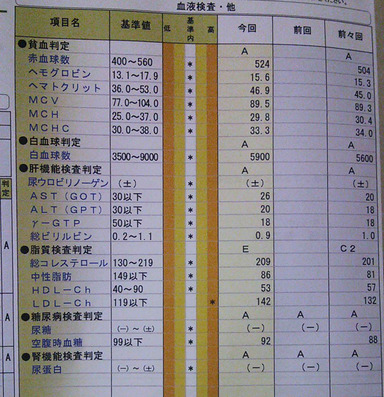 血液検査・他
項目名 基準値 低 基準内 高 今回 前回 前々回
●貧血判定 A A
赤血球数 400～560 * 524 504
ヘモグロビン 13.1～17.9 * 15.6 15.3
ヘマトクリット 36.0～53.0 * 46.9 45.0
ＭＣＶ 77.0～104.0 * 89.5 89.3
ＭＣＨ 25.0～37.0 * 29.8 30.4
ＭＣＨＣ 30.0～38.0 * 33.3 34.0
●白血球判定 A A
白血球数 3500～9000 * 5900 5600
●肝機能検査判定 A A
尿ウロビリノーゲン (±) * (±) (±)
ＡＳＴ（ＧＯＴ） 30以下 * 26 20
ＡＬＴ（ＧＰＴ） 30以下 * 20 18
γ－ＧＴＰ 50以下 * 18 18
総ビリルビン 0.2～1.1 * 0.9 1.0
●脂質検査判定 E C2
総コレステロール 130～219 * 209 201
中性脂肪 149以下 * 86 81
ＨＤＬ－Ｃｈ 40～90 * 53 57
ＬＤＬ－Ｃｈ 119以下 * 142 132
●糖尿病検査判定 A A A
尿糖 (－)～(±) * (－) (－) (－)
空腹時血糖 99以下 * 92 88
●腎機能検査判定 A A A
尿蛋白 (－)～(±) * (－) (－) (－)
判定
A
A
A